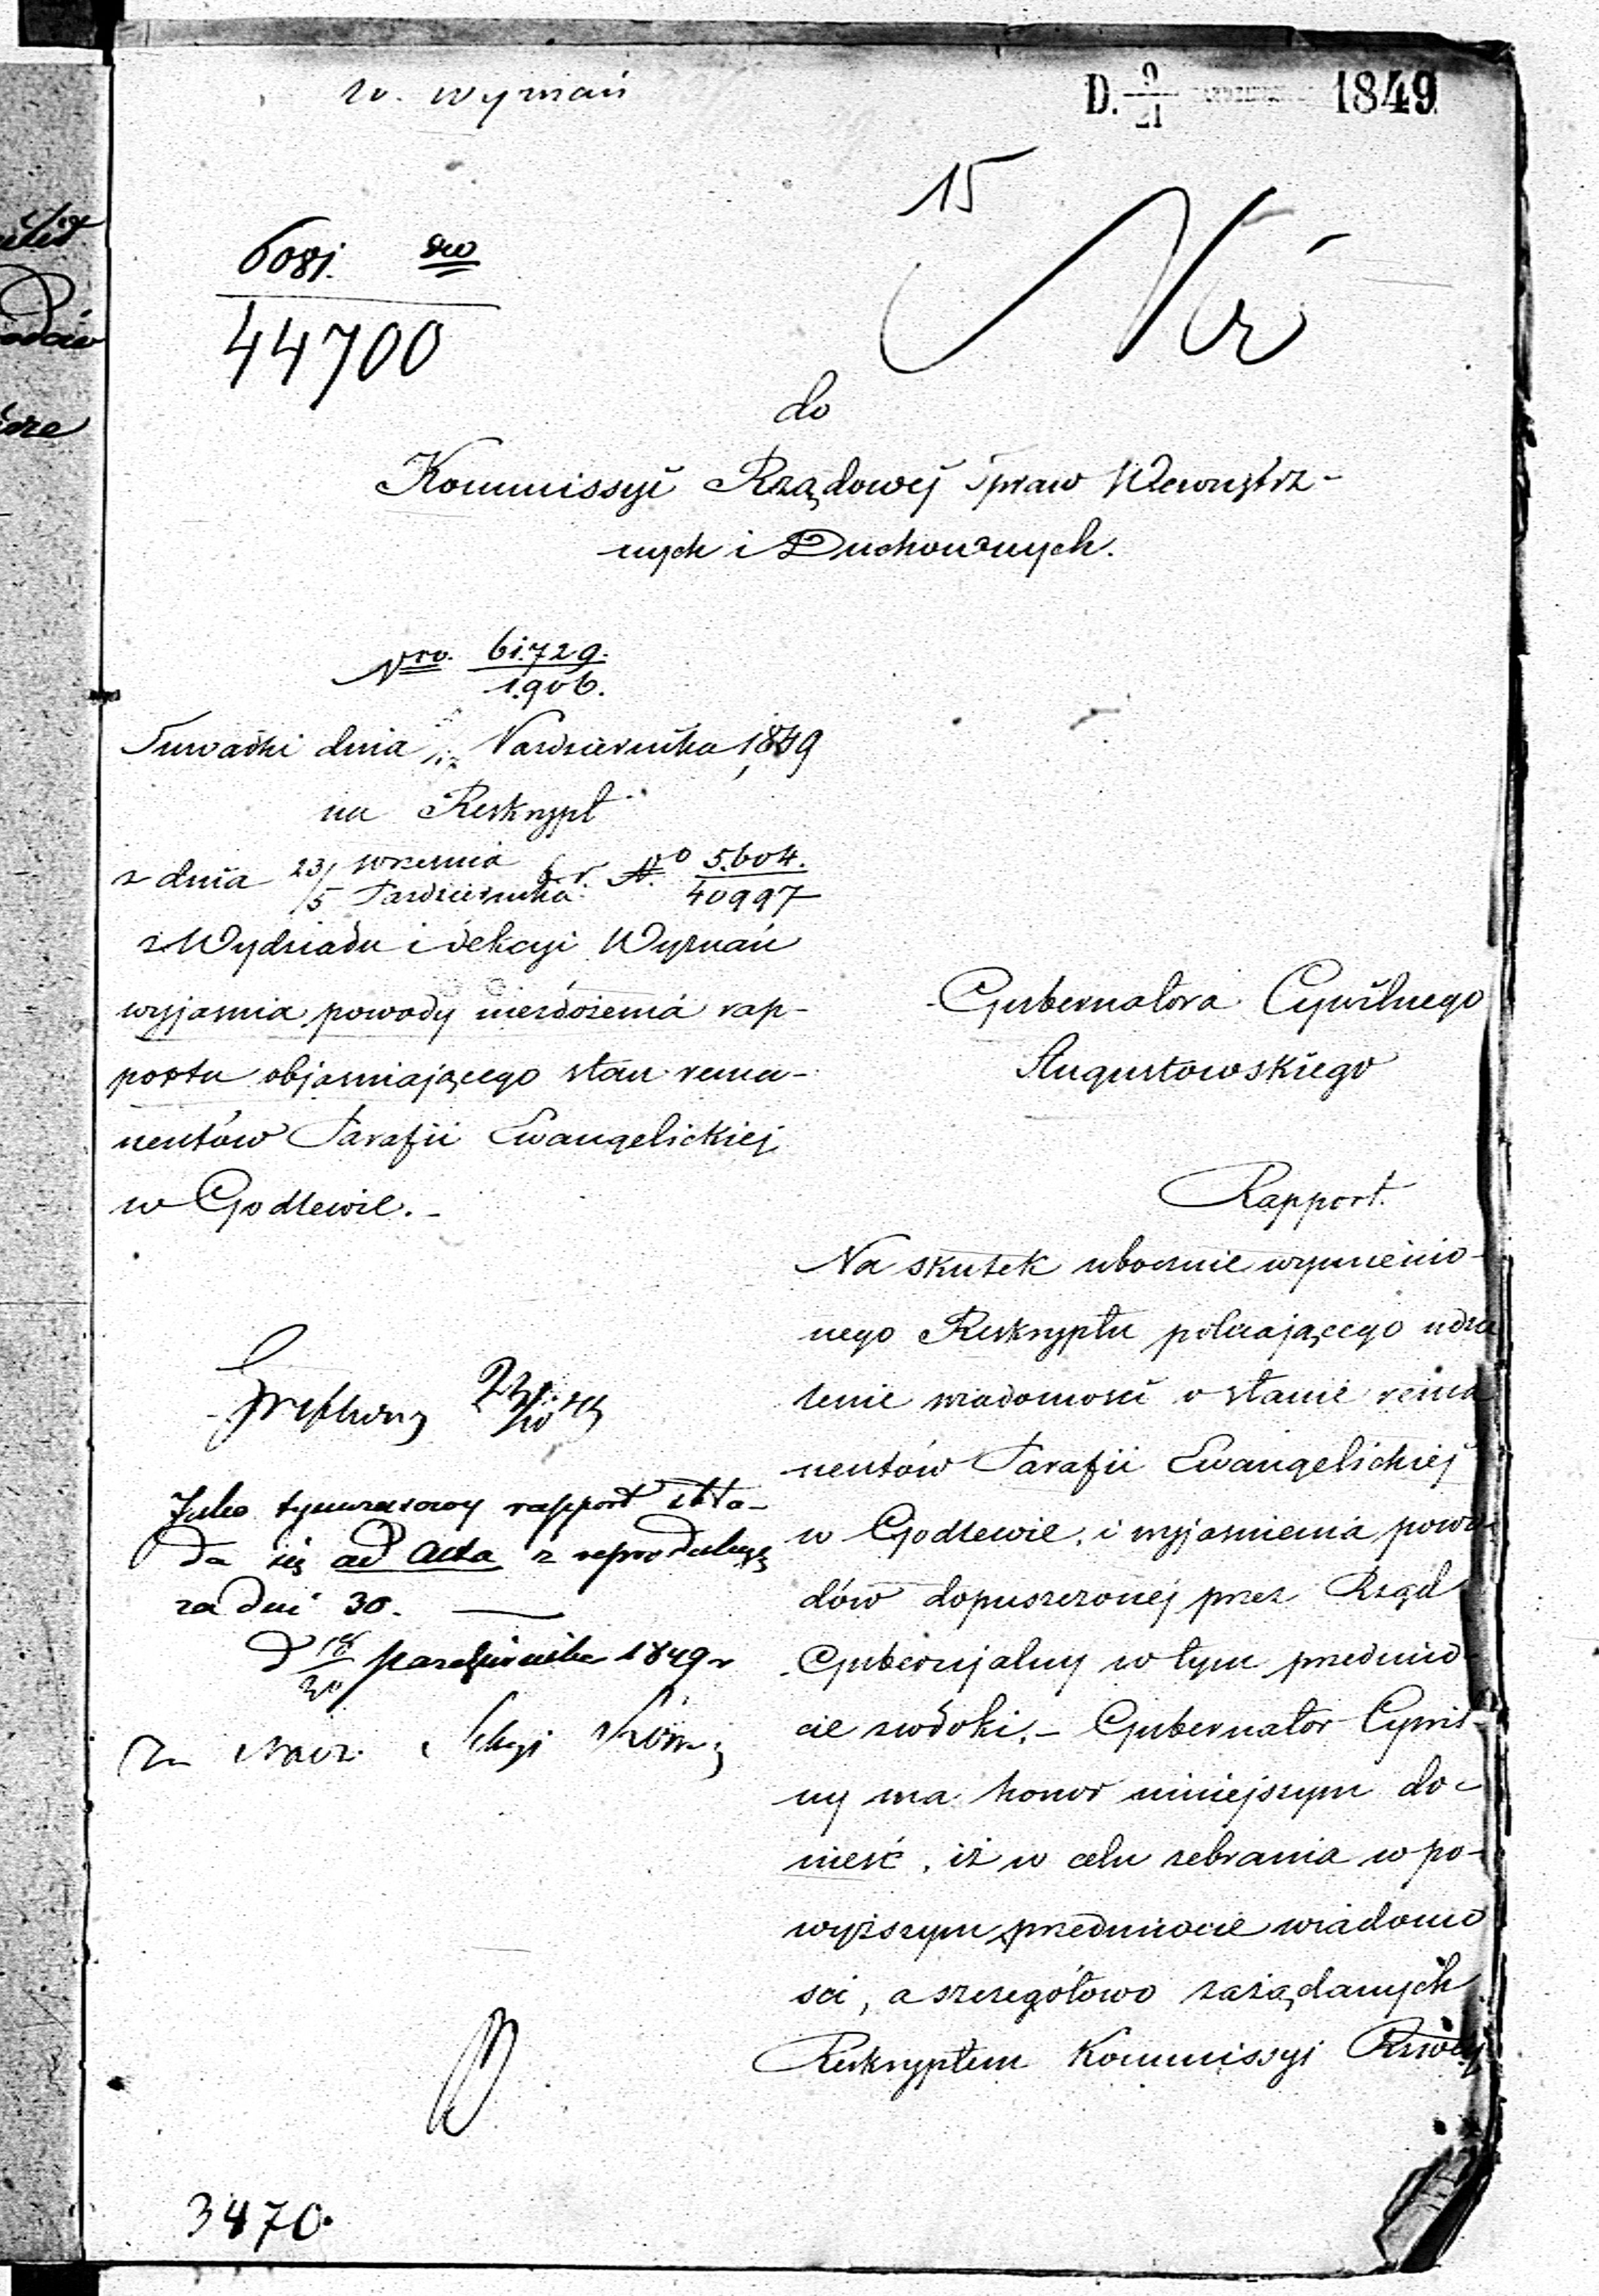 w. wyznań
D. 9/21 1849
15
6081.
44700
do
Kommissyi Rządowéj Spraw Wewnętrz-
nych i Duchownych.
Nro. 61.729.
1.906.
Suwałki dnia Października 1849
na Reskrypt
z dnia 23/5 Września Października b. r. No 5.604.
40997
z Wydziału i Sekcyi Wyznań
wyjasnia powody niezłożenia rap-
portu objasniającego stan rema-
nentów Parafii Ewangelickiej
w Godlewie.-
Gubernatora Cywilnego
Augustowskiego
Rapport.
Na skutek ubocznie wymienio-
nego Reskryptu polecającego udzie
lenie wiadomości o stanie rema
nentów Parafii Ewangelickiej
w Godlewie, i wyjasnienia powo-
dów dopuszczonej przez Rząd
Gubernjalny w tym przedmio
cie zwłoki.- Gubernator Cywil-
ny ma honor niniejszym do-
nieść, iż w celu zebrania w po-
wyższym przedmiocie wiadomo
sci, a szczegółowo zażądanych
Reskryptem Kommissyi Rząwéj
Jako tymczasowy rapport skła-
da się ad acta z reprodukcyą
za dni 30.
d 18/30 października 1849 r
Za Nacz. Sekcyi
3470.